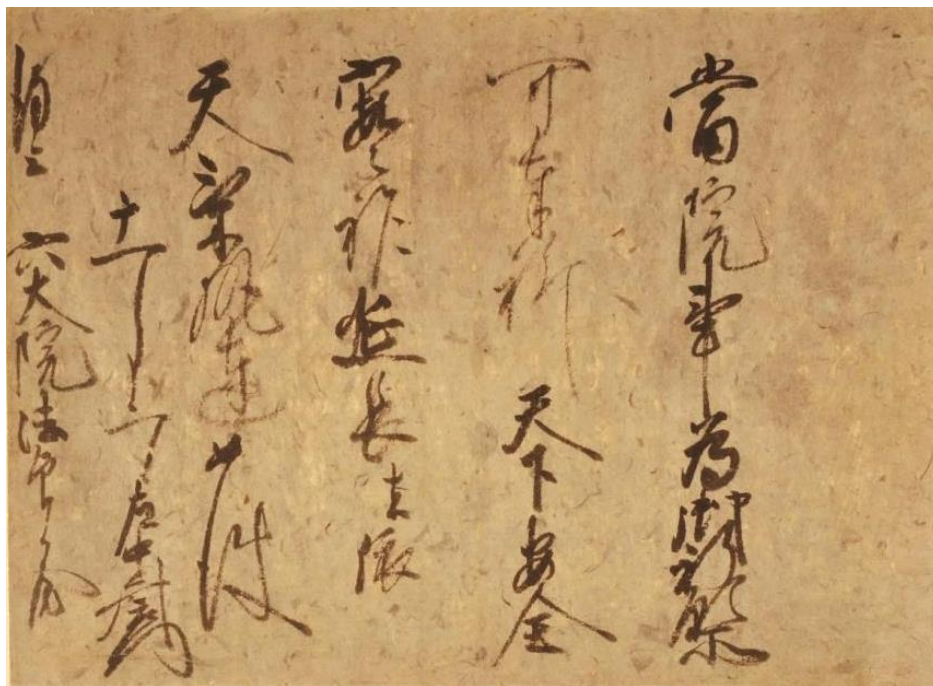 當院事為御祈
可奉祈天下安全
寳祚延長者依
天氣執達如件
十一月 左中
謹上 六大院法印御房